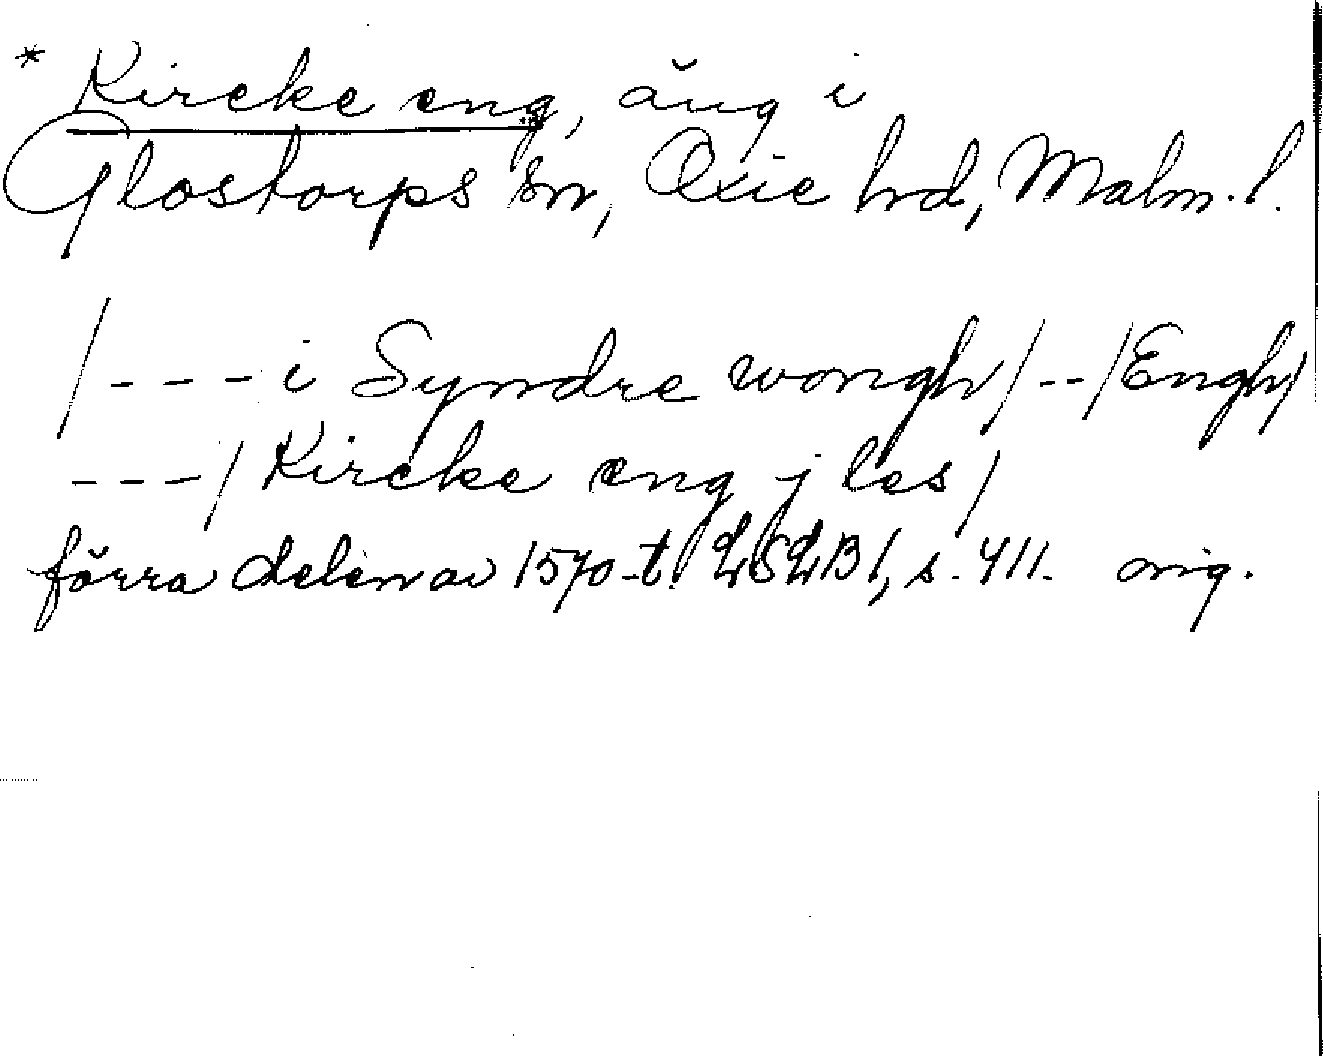 * Kircke eng, äng i
Glostorps sn, Oxie hd, Malm. l.
/--- i Syndre wongh/--/Engh/
---/Kircke eng j les/
förra delen av 1570-t. LSLB 1, s. 411. orig.